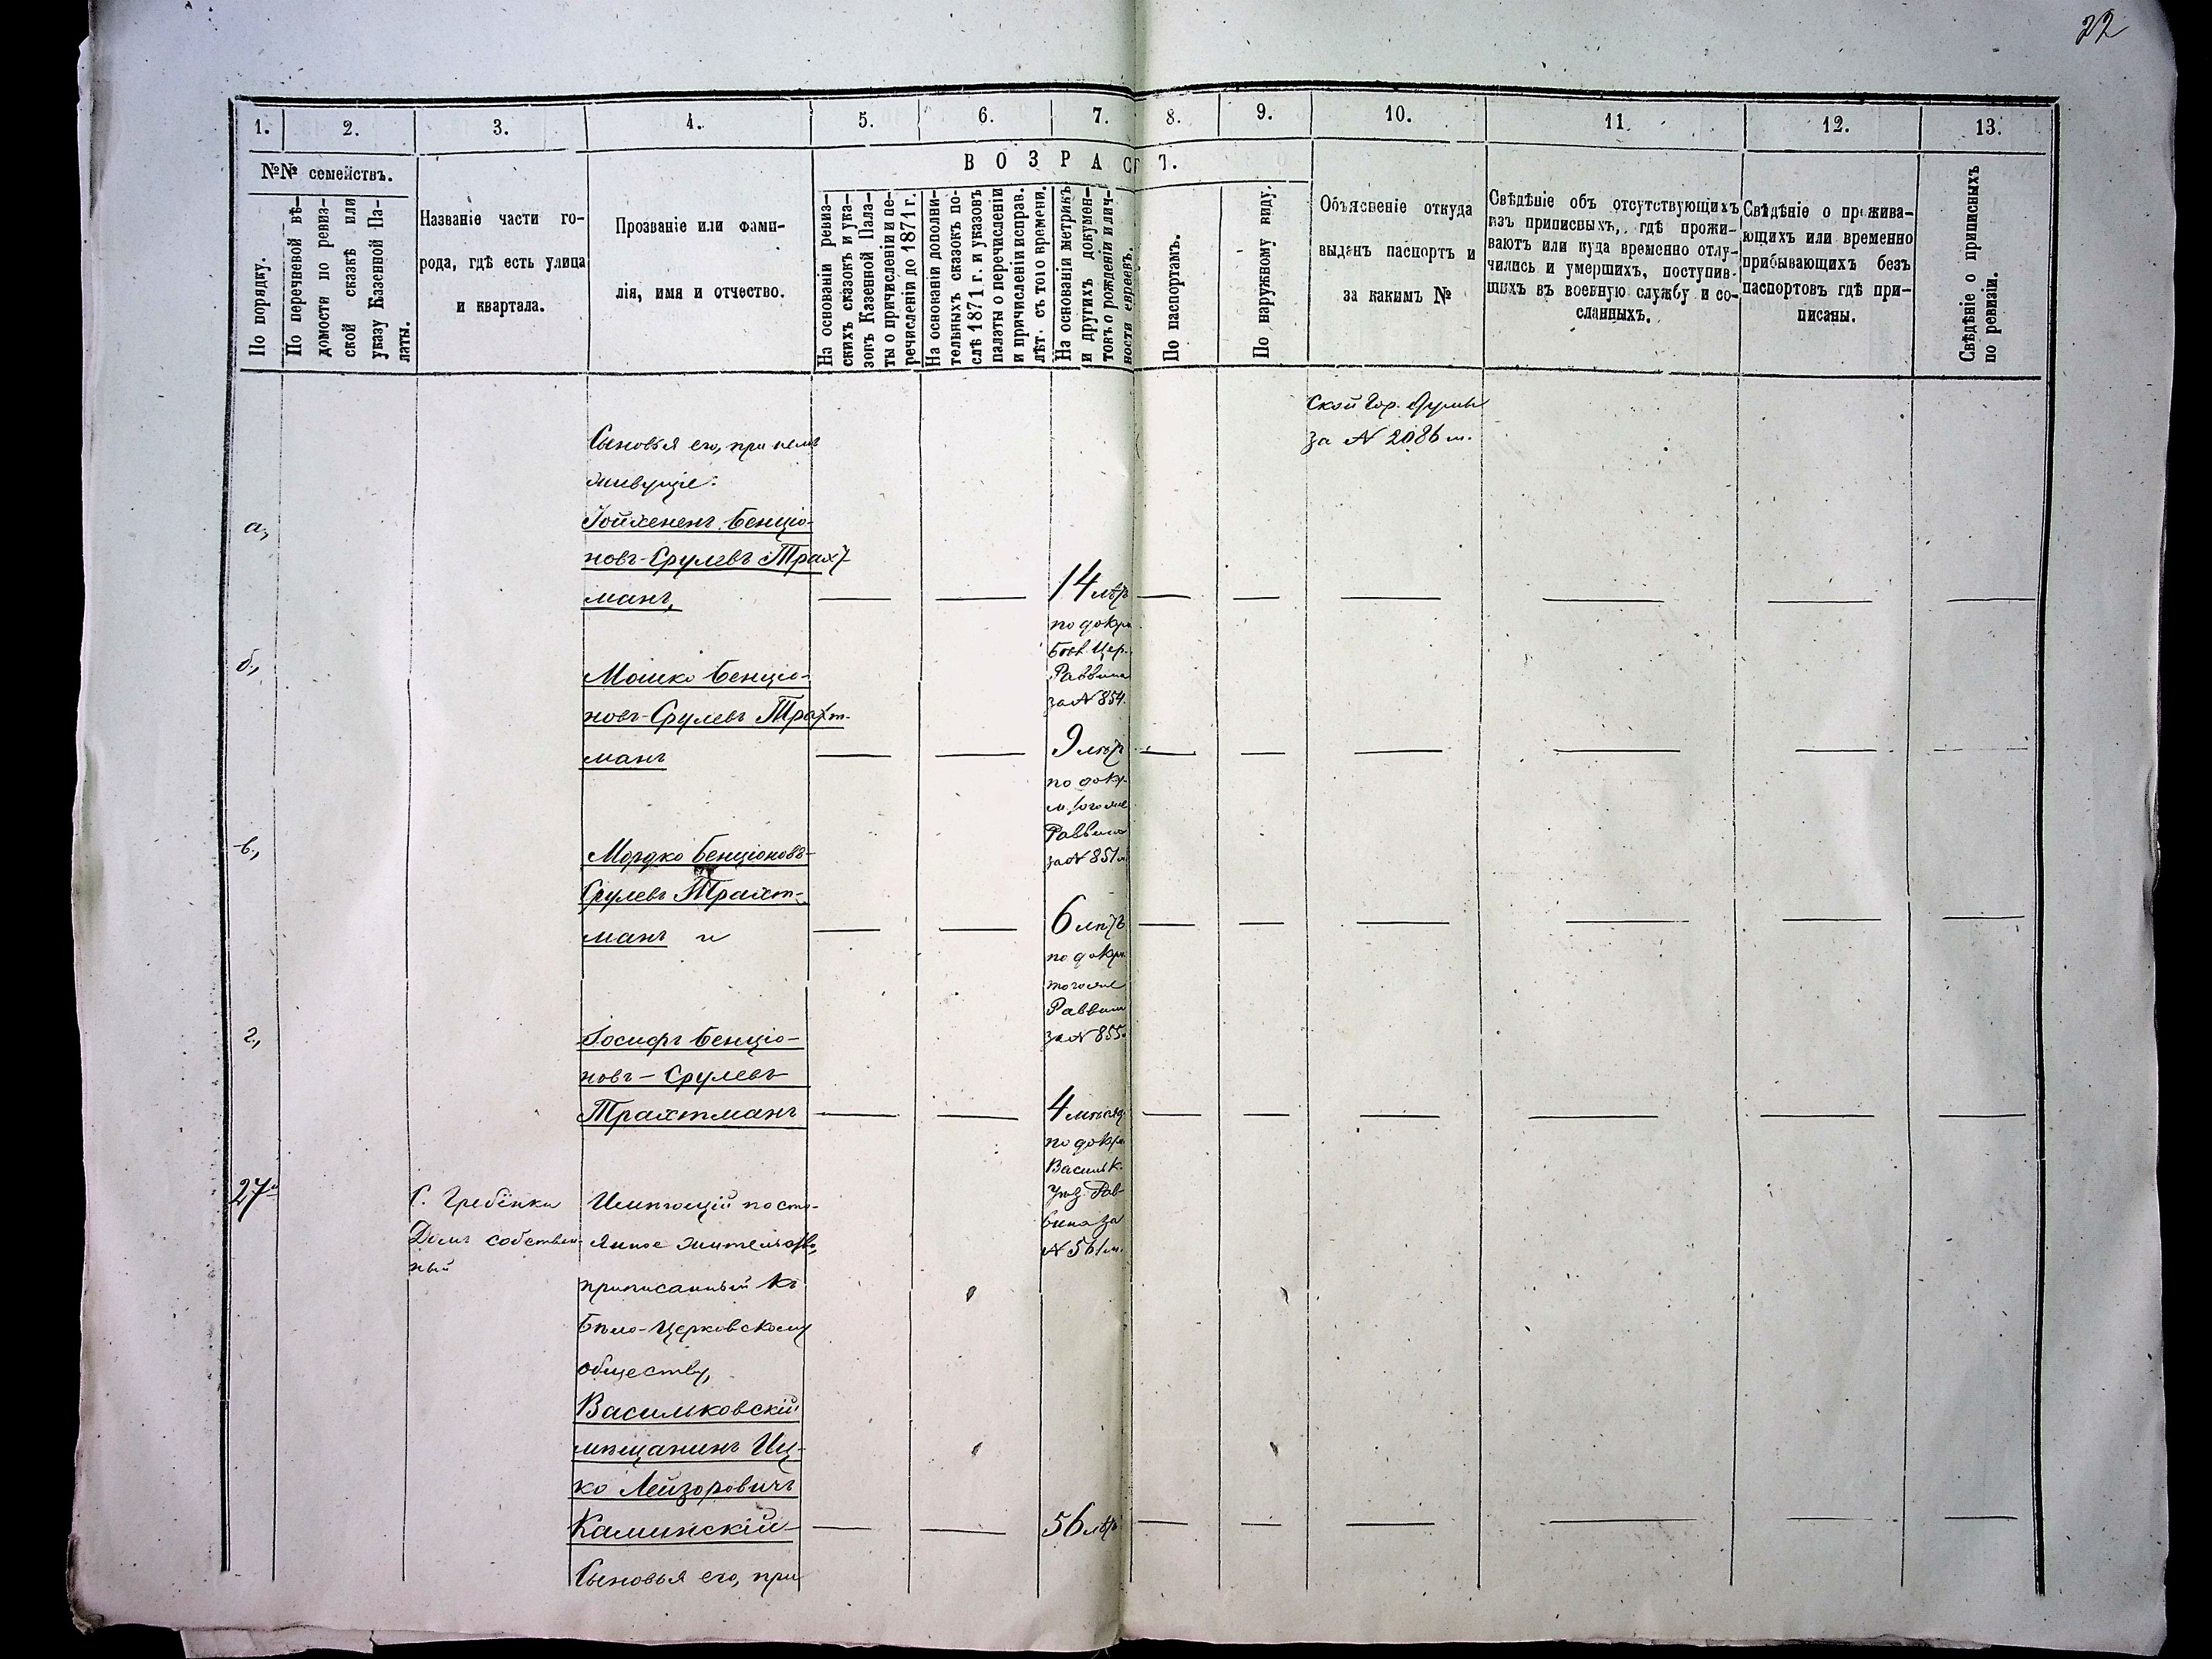 22
1. 2. 3. 4. 5. 6. 7. 8. 9. 10. 11. 12. 13.
№№ семействъ.
ВОЗРАСТ.
По порядку.
По перечневой вѣ-
домости по ревиз-
ской сказкѣ или
указу Казенной Па-
латы.
Названіе части го-
рода, гдѣ есть улица
и квартала.
Прозваніе или фами-
лія, имя и отчество.
На основаніи ревиз-
скихъ сказокъ и ука-
зовъ Казенной Пала-
ты о причисленіи и пе-
речисленіи до 1871 г.
На основаніи дополни-
тельныхъ сказокъ по-
слѣ 1871 г. и указовъ
палаты о перечисленіи
и причисленіи исправ.
лѣт. съ того времени.
На основаніи метрикъ
и другихъ докумен-
товъ о рожденіи и лич-
ности евреевъ.
По паспортамъ.
По наружному виду.
Объясненіе откуда
выданъ паспортъ и
за какимъ №
Свѣдѣніе объ отсутствующихъ
изъ приписныхъ, гдѣ прожи-
ваютъ или куда временно отлу-
чились и умершихъ, поступив-
шихъ въ военную службу и со-
сланныхъ.
Свѣдѣніе о прожива-
ющихъ или временно
прибывающихъ безъ
паспортовъ гдѣ при-
писаны.
Свѣдѣніе о приписныхъ
по ревизіи.
ской Гор. Думы
за № 2086 м.
Сыновья его, при немъ
живущіе:
а,
Іойхененъ Бенціо-
новъ-Срулевъ Трахт-
манъ,
14 лѣтъ
по докум.
Бѣл. Цер.
Раввина
за № 854.
б,
Мошко Бенціо-
новъ-Срулевъ Трахт-
манъ
9 лѣтъ
по докум.
тогоже
Раввина
за № 851 м.
в,
Мордко Бенціоновъ-
Срулевъ Трахт-
манъ и
6 лѣтъ
по докум.
тогоже
Раввина
за № 855
г,
Іосифъ Бенціо-
новъ-Срулевъ
Трахтманъ
4 лѣтъ
по докум.
Васильк.
Уѣз. Рав-
вина за
№ 561 м.
27
С. Гребёнки
Домъ собствен-
ный
Имѣющій посто-
янное жительство,
приписанный къ
Бѣло-Церковскому
обществу,
Васильковскій
мѣщанинъ Иц-
ко Лейзоровичъ
Каминскій
56 лѣтъ
Сыновья его, при